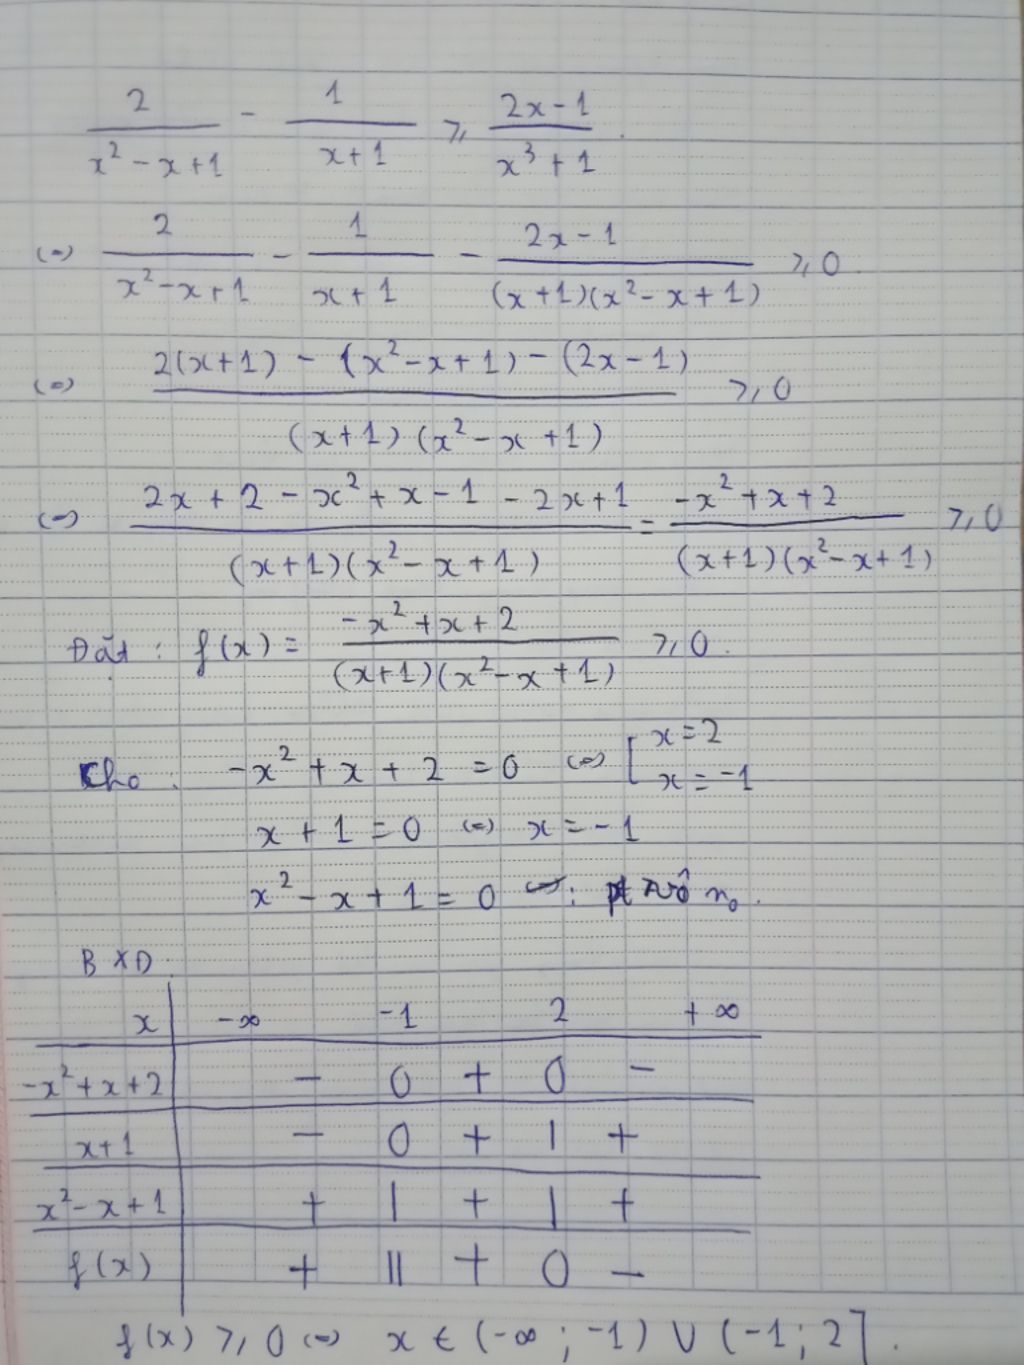 2/(x² - x + 1) - 1/(x + 1) ⩾ (2x - 1)/(x³ + 1).
(=) 2/(x² - x + 1) - 1/(x + 1) - (2x - 1)/((x + 1)(x² - x + 1)) ⩾ 0.
(=) (2(x+1) - (x² - x + 1) - (2x - 1))/((x+1)(x² - x + 1)) ⩾ 0
(=) (2x + 2 - x² + x - 1 - 2x + 1)/((x+1)(x² - x + 1)) = (-x² + x + 2)/((x+1)(x² - x + 1)) ⩾ 0
Đặt : f(x) = (-x² + x + 2)/((x+1)(x² - x + 1)) ⩾ 0.
Cho : -x² + x + 2 = 0 (=) [ x = 2
x = -1
x + 1 = 0 (=) x = -1
x² - x + 1 = 0 : pt vô n₀.
BXD.
x | -∞ -1 2 +∞
-x² + x + 2 | - 0 + 0 -
x+1 | - 0 + | +
x² - x + 1 | + | + | +
f(x) | + || + 0 -
f(x) ⩾ 0 (=) x ∈ (-∞ ; -1) ∪ (-1 ; 2].